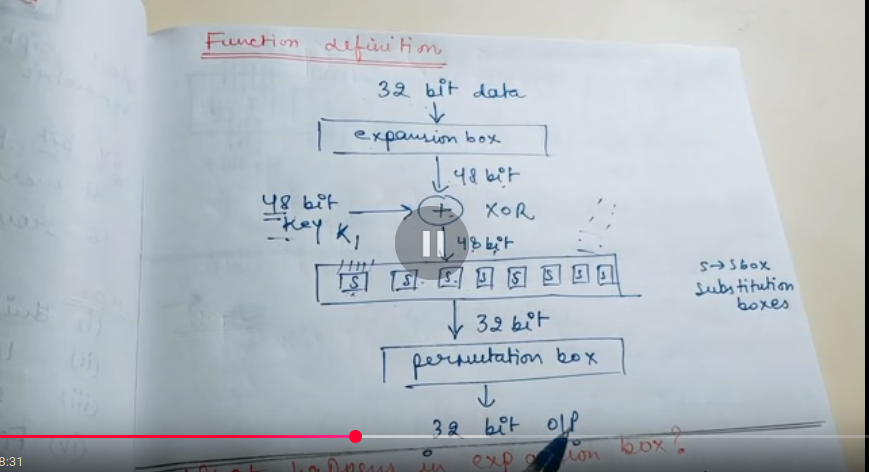 Function definition
32 bit data
expansion box
48 bit
48 bit
Key K1
+ XOR
48 bit
S S S S S S S S
S→Sbox
substitution
boxes
32 bit
permutation box
32 bit o/p
happens in box?
8:31